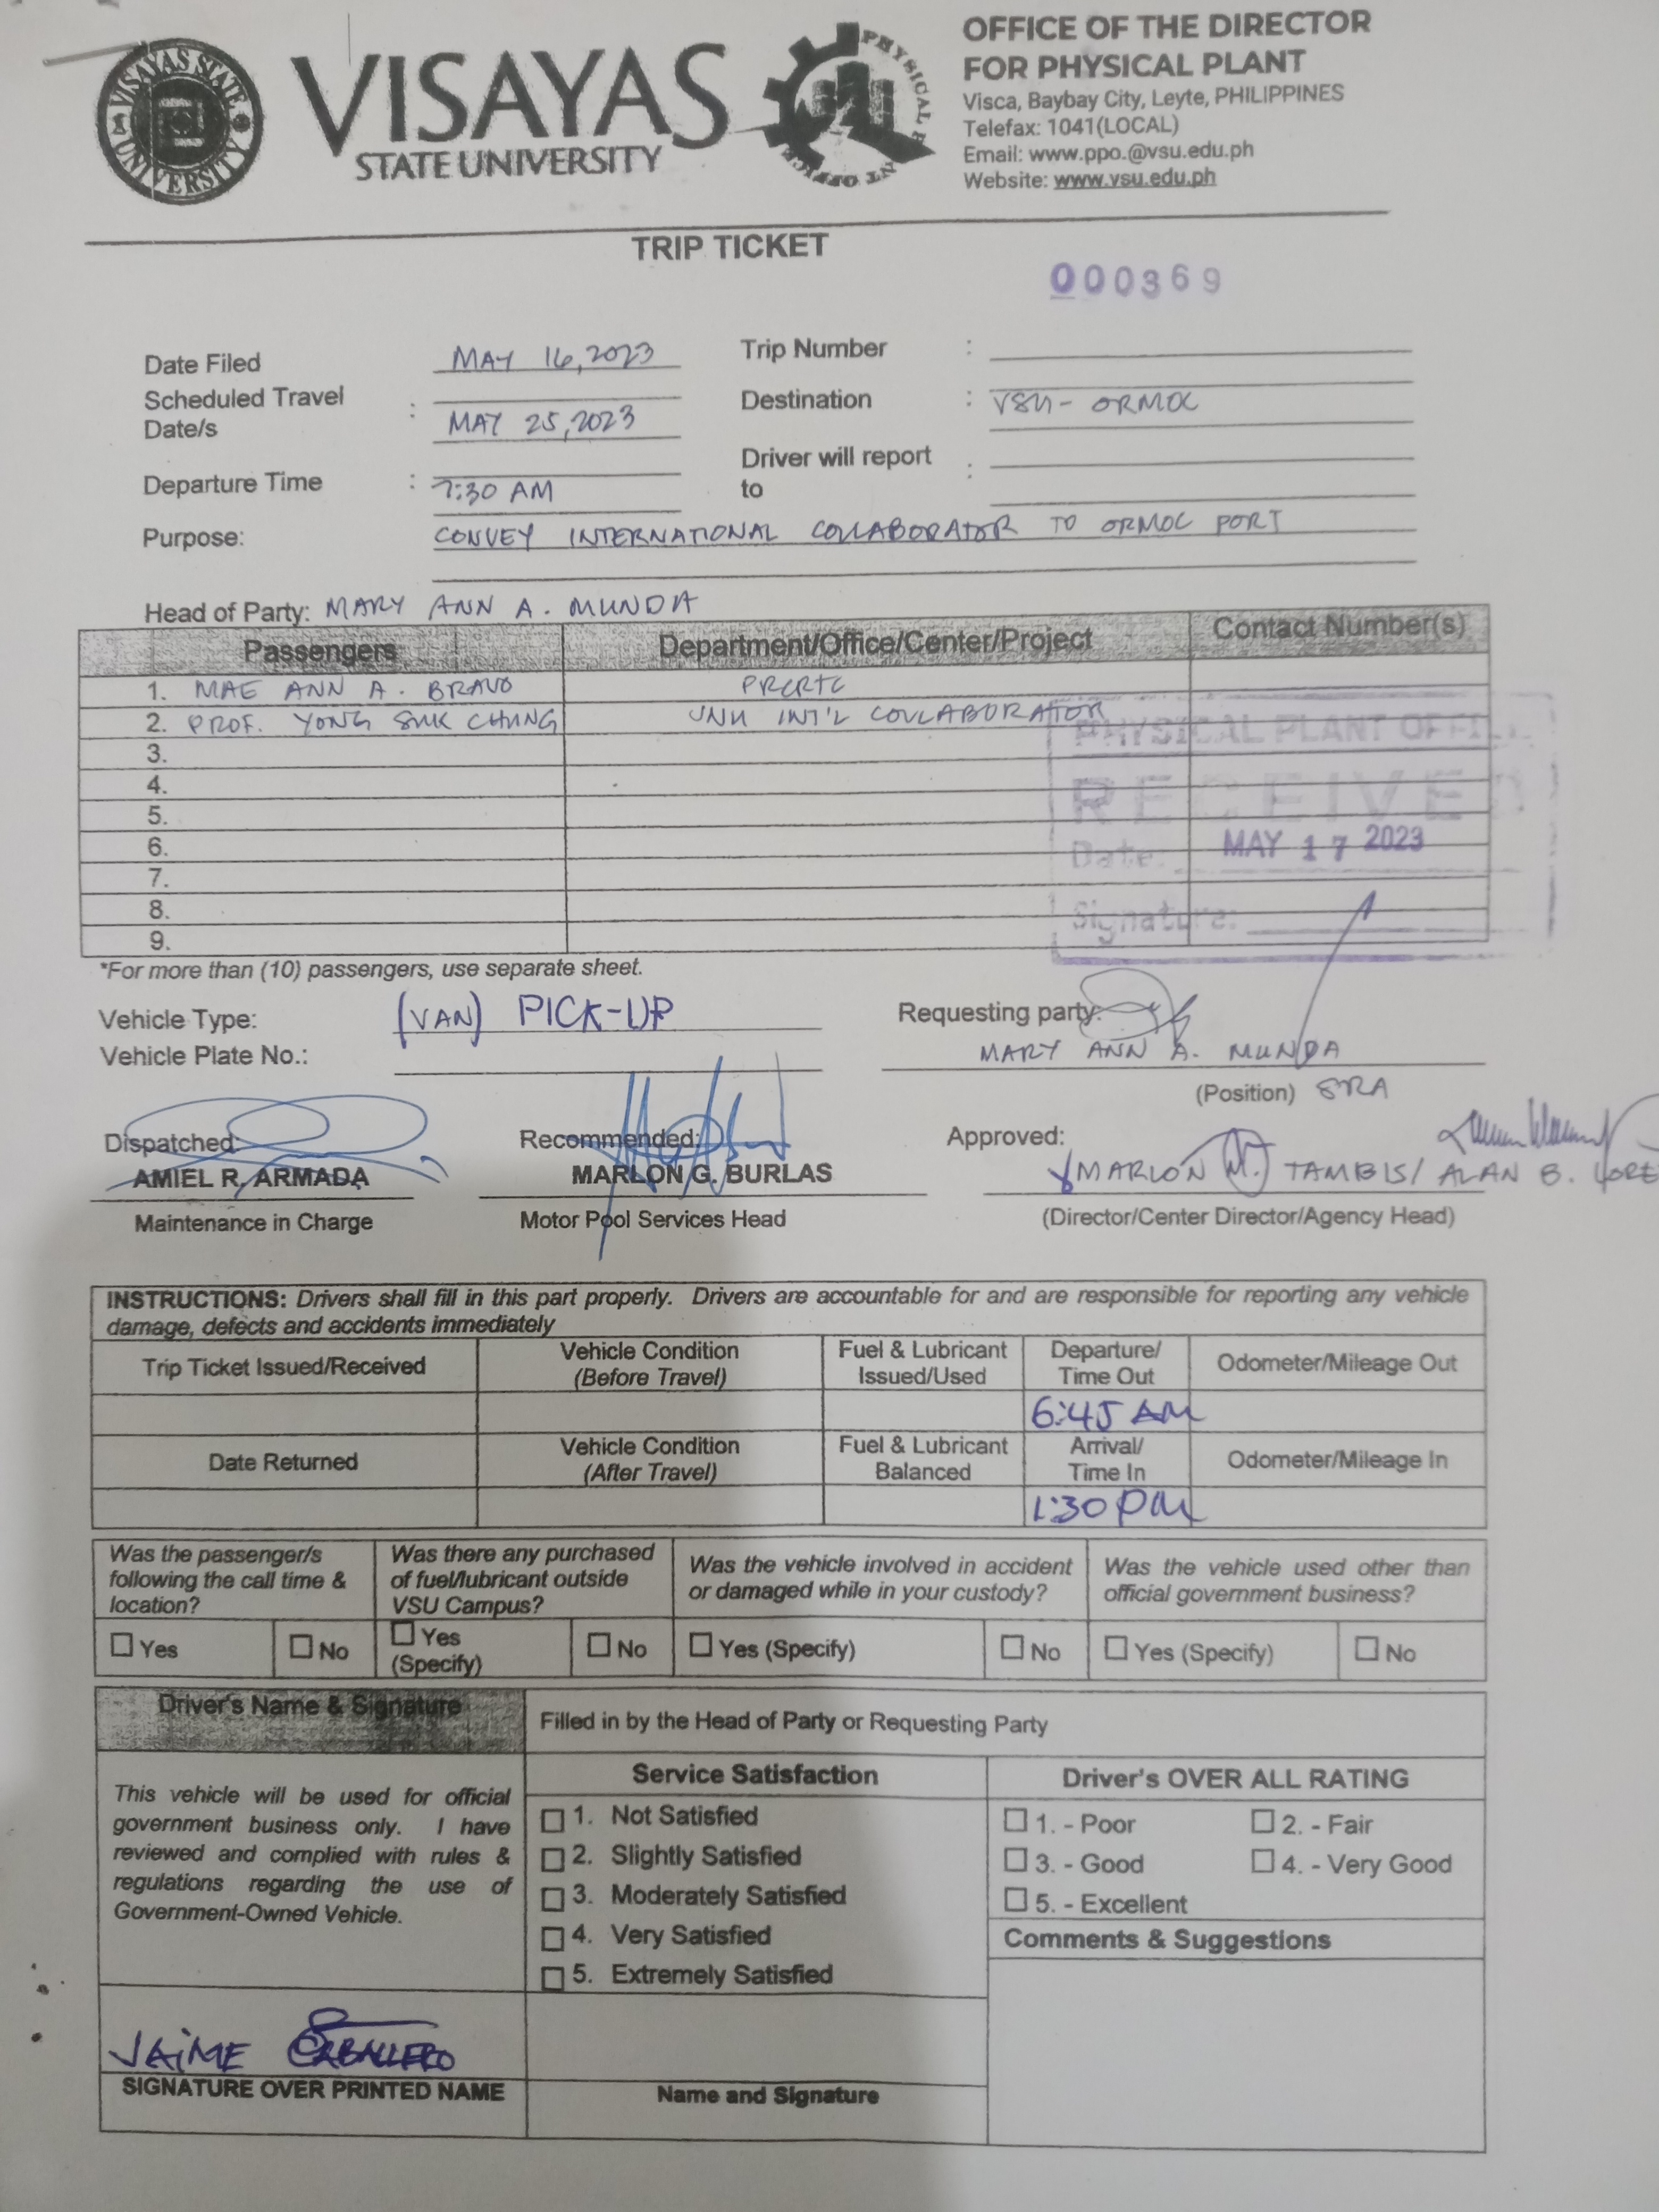 VISAYAS STATE UNIVERSITY
VISAYAS
STATE UNIVERSITY
PHYSICAL PLANT OFFICE
OFFICE OF THE DIRECTOR
FOR PHYSICAL PLANT
Visca, Baybay City, Leyte, PHILIPPINES
Telefax: 1041(LOCAL)
Email: www.ppo.@vsu.edu.ph
Website: www.vsu.edu.ph
TRIP TICKET
000369
Date Filed MAY 16,2023 Trip Number :
Scheduled Travel Date/s : MAY 25,2023 Destination : VSU- ORMOC
Departure Time : 7:30 AM Driver will report to :
Purpose: CONVEY INTERNATIONAL COLLABORATOR TO ORMOC PORT
Head of Party: MARY ANN A. MUNDA
Passengers Department/Office/Center/Project Contact Number(s)
1. MAE ANN A. BRAVO PRCRTC
2. PROF. YONG SUK CHUNG JNU INT'L COLLABORATOR
3.
4.
5.
6.
7.
8.
9.
PHYSICAL PLANT OFFICE
RECEIVED
Date: MAY 17 2023
Signature:
*For more than (10) passengers, use separate sheet.
Vehicle Type: (VAN) PICK-UP Requesting party:
Vehicle Plate No.: MARY ANN A. MUNDA
(Position) SRA
Dispatched: Recommended: Approved:
AMIEL R. ARMADA MARLON G. BURLAS MARLON M. TAMBIS/ ALAN B.
Maintenance in Charge Motor Pool Services Head (Director/Center Director/Agency Head)
INSTRUCTIONS: Drivers shall fill in this part properly. Drivers are accountable for and are responsible for reporting any vehicle
damage, defects and accidents immediately
Trip Ticket Issued/Received Vehicle Condition (Before Travel) Fuel & Lubricant Issued/Used Departure/ Time Out Odometer/Mileage Out
6:45 AM
Date Returned Vehicle Condition (After Travel) Fuel & Lubricant Balanced Arrival/ Time In Odometer/Mileage In
1:30 PM
Was the passenger/s following the call time & location? Was there any purchased of fuel/lubricant outside VSU Campus? Was the vehicle involved in accident or damaged while in your custody? Was the vehicle used other than official government business?
Yes No Yes (Specify) No Yes (Specify) No Yes (Specify) No
Driver's Name & Signature Filled in by the Head of Party or Requesting Party
This vehicle will be used for official
government business only. I have
reviewed and complied with rules &
regulations regarding the use of
Government-Owned Vehicle.
Service Satisfaction
1. Not Satisfied
2. Slightly Satisfied
3. Moderately Satisfied
4. Very Satisfied
5. Extremely Satisfied
Driver's OVER ALL RATING
1. - Poor 2. - Fair
3. - Good 4. - Very Good
5. - Excellent
Comments & Suggestions
JAIME CABALLERO
SIGNATURE OVER PRINTED NAME Name and Signature